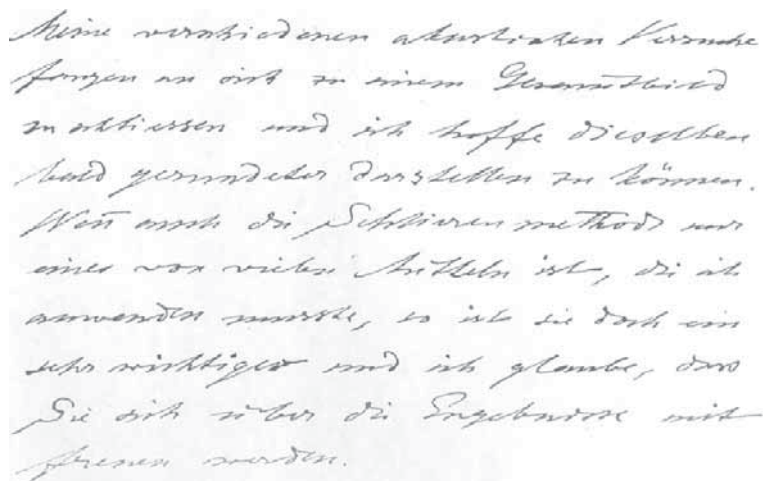 Meine verschiedenen akustischen Versuche
fangen an sich zu einem Gesamtbild
zu schliessen und ich hoffe dieselben
bald gerundeter darstellen zu können.
Wen̄ auch die Schlierenmethode nur
eines von vielen Mitteln ist, die ich
anwenden musste, so ist sie doch ein
sehr wichtiges und ich glaube, dass
Sie sich über die Ergebnisse mit
freuen werden.